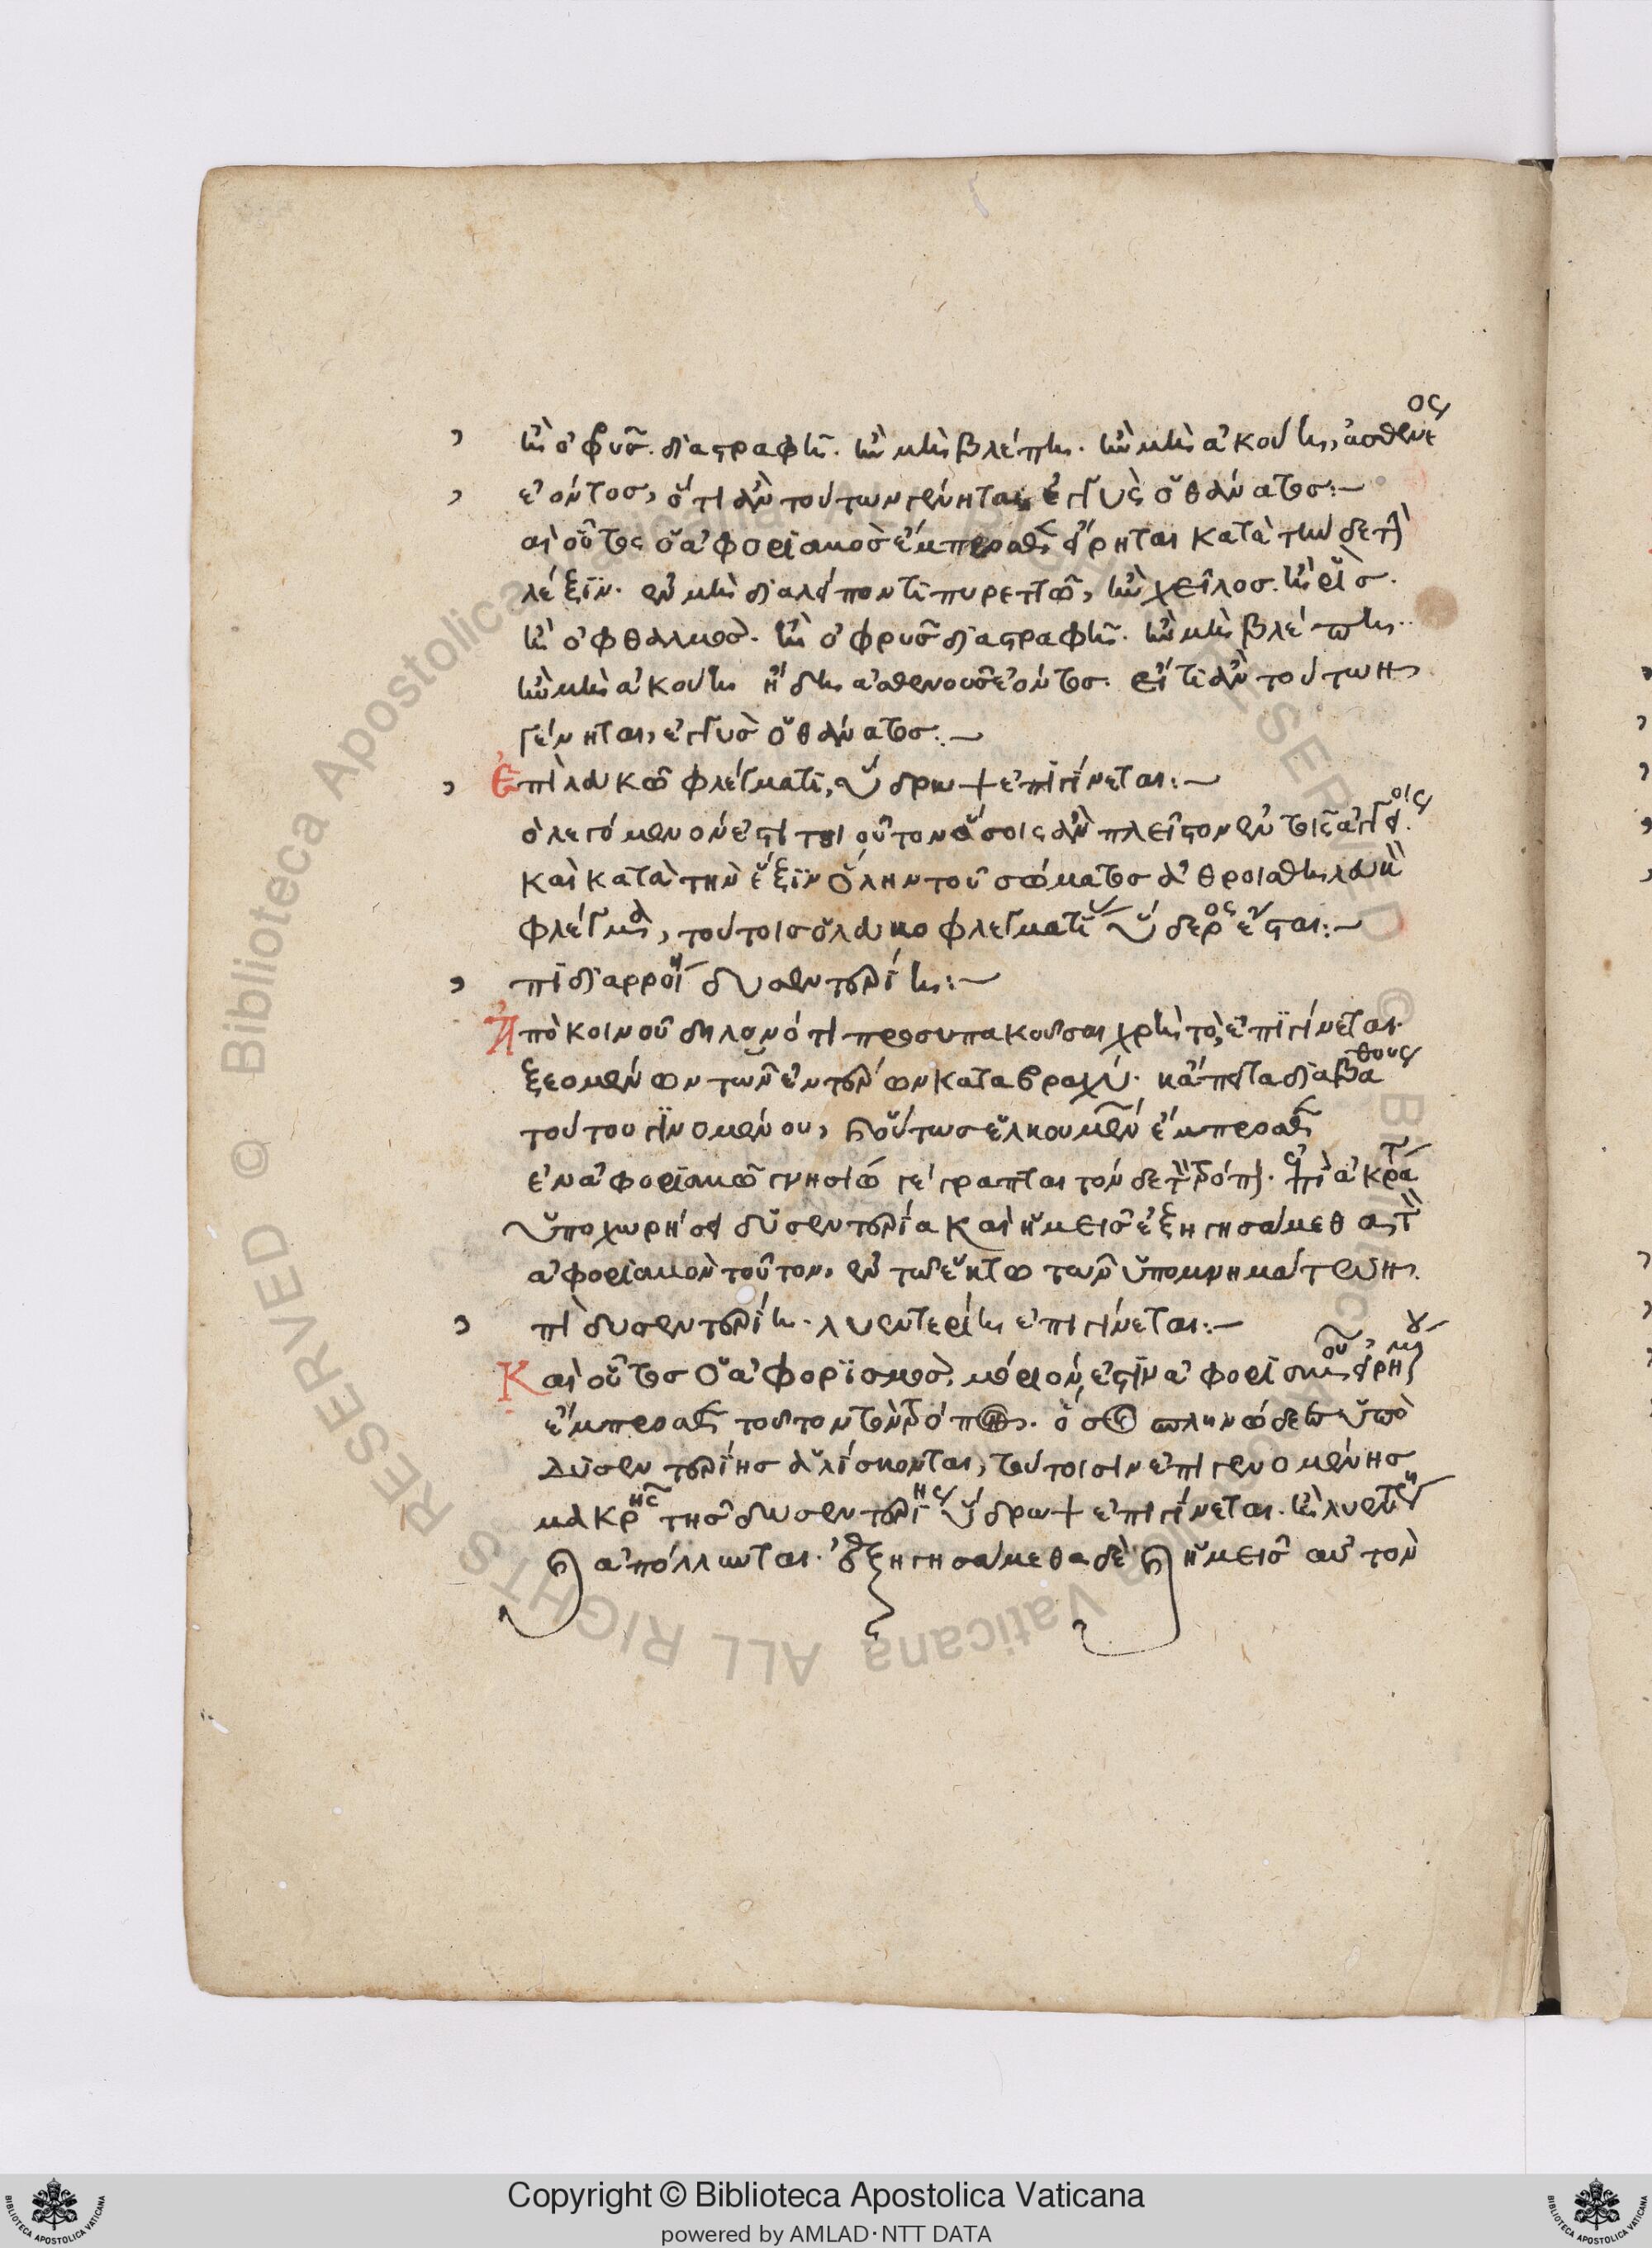 ἢ ὀφρῦς διαστραφῇ. ἢν μὴ βλέπῃ. ἢν μὴ ἀκούῃ, ἀσθενέος
ἐόντος, ὅτι ἂν τούτων γένηται, ἐγγὺς ὁ θάνατος:—
αὶ οὗτος ὁ ἀφορισμὸς ἔμπροσθεν εἴρηται κατὰ τήνδε τὴν
λέξιν. ἐν μὴ διαλείποντι πυρετῶ, ἢν χεῖλος. ἢ ῥὶς.
ἢ ὀφθαλμὸς. ἢ ὀφρῦς διαστραφῇ. ἢν μὴ βλέπῃ.
ἢν μὴ ἀκούῃ ἤδη ἀσθενοῦς ἐόντος. εἴ τι ἂν τούτων
γένηται, ἐγγὺς ὁ θάνατος:—
Ἐπὶ λευκῶ φλέγματι, ὕδρωψ ἐπιγίνεται:—
ὸ λεγόμενόν ἐστι τοιοῦτον ὅσοις ἂν πλεῖστον ἐν τοῖς ἀγγείοις.
καὶ κατὰ τὴν ἕξιν ὅλην τοῦ σώματος ἀθροισθῇ λευκὸν
φλέγμα, τούτοις ὁ λευκοφλεγματίας ὕδερος ἔσται:—
πὶ διαρροίῃ δυσεντερίη:—
Ἀπὸ κοινοῦ δηλονότι προσυπακοῦσαι χρὴ τὸ, ἐπιγίνεται.
ξεομένων τῶν ἐντέρων κατα βραχύ. κἄπειτα διὰ βάθους
τούτου γινομένου, καὶ οὕτως ἑλκουμένων ἔμπροσθεν
ἐν ἀφορισμῶ γνησίω γέγραπται τόνδε τὸν τρόπον. ἐπὶ ἀκράτω
ὑποχωρήσει δυσεντερία καὶ ἡμεῖς ἐξηγησάμεθα τὸν
ἀφορισμὸν τοῦτον, ἐν τῶ ἕκτω τῶν ὑπομνημάτων.
πὶ δυσεντερίῃ. λυεντερίη ἐπιγίνεται:—
Καὶ οὗτος ὁ ἀφορισμὸς, μόριόν ἐστιν ἀφορισμοῦ εἰρημένου
ἔμπροσθεν τοῦτον τὸν τρόπον. ὅσοι σπληνώδεες ὑπὸ
δυσεντερίης ἁλίσκονται, τούτοισιν ἐπιγενομένης
μακρῆς τῆς δυσεντερίης ὕδρωψ ἐπιγίνεται. ἢ λυεντερίη
καὶ ἀπόλλυνται. ἐξηγησάμεθα δὲ καὶ ἡμεῖς αὐτὸν
Copyright © Biblioteca Apostolica Vaticana
powered by AMLAD·NTT DATA